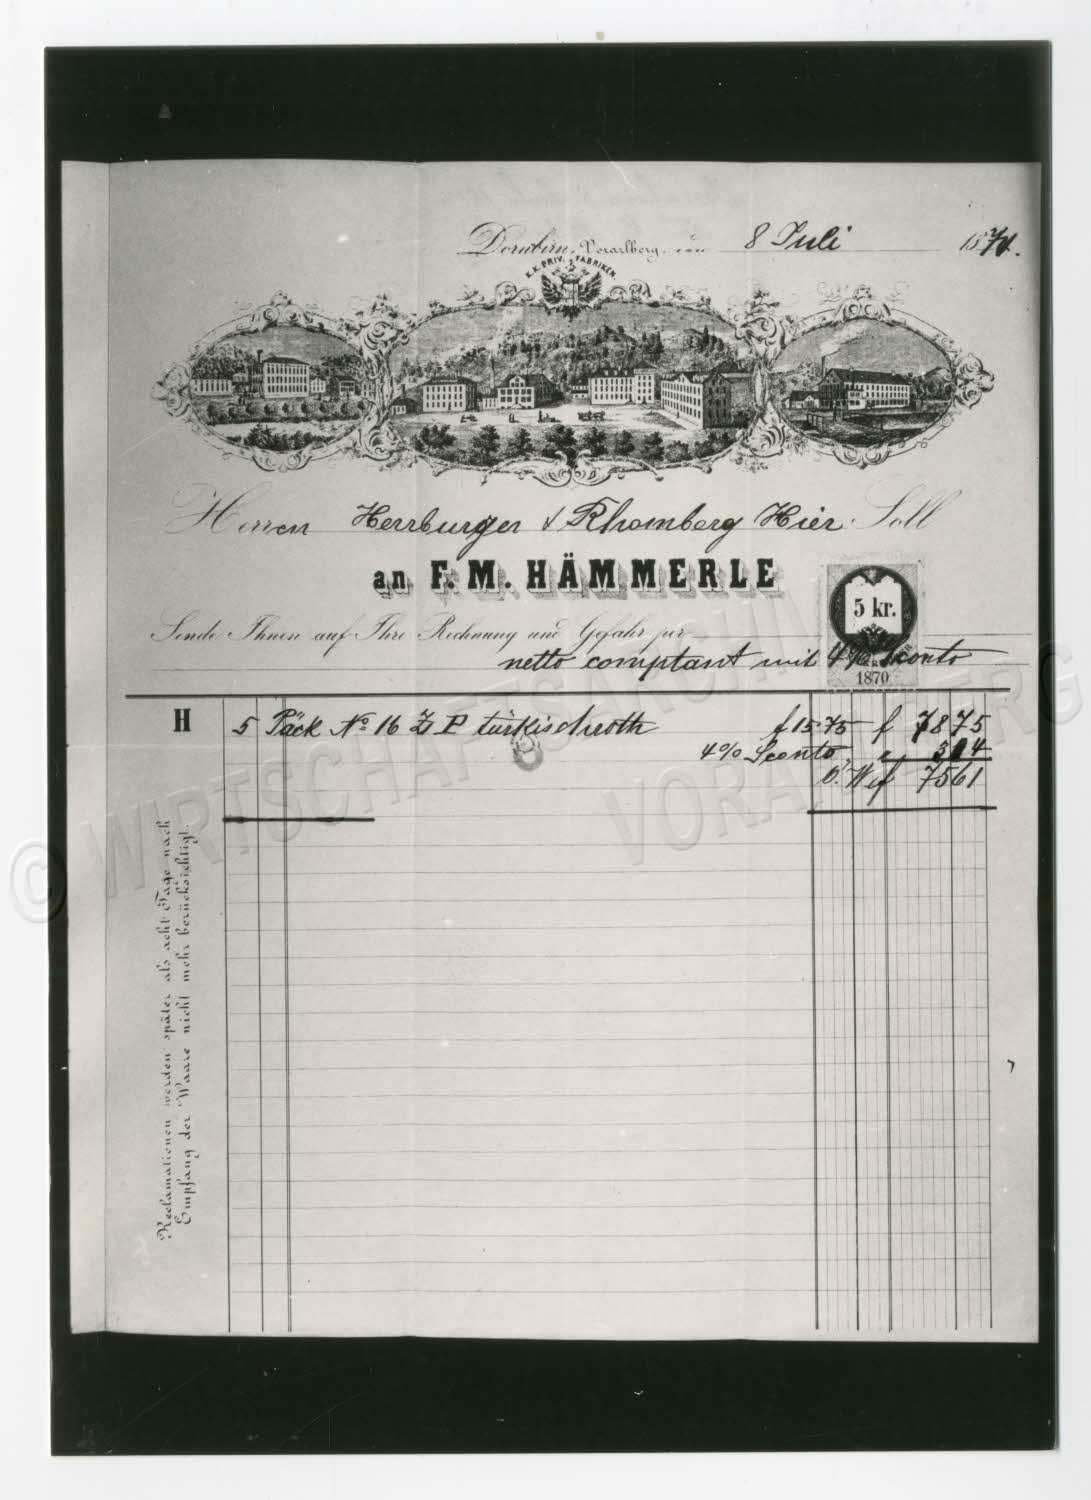 Dornbirn, Vorarlberg, am 8 Juli 1871.
K.K. PRIV. FABRIKEN.
Herren Herrburger & Rhomberg Hier. Soll
an F. M. HÄMMERLE
5 kr.
Sende Ihnen auf Ihre Rechnung und Gefahr per
netto comptant mit 4% Sconto
1870
H 5 Päck No 16 Z P türkischroth f 15.75 f 7875
4% Sconto " 314
Ö. W f 7561
Reclamationen werden später als acht Tage nach
Empfang der Waare nicht mehr berücksichtigt.
© WIRTSCHAFTSARCHIV VORARLBERG